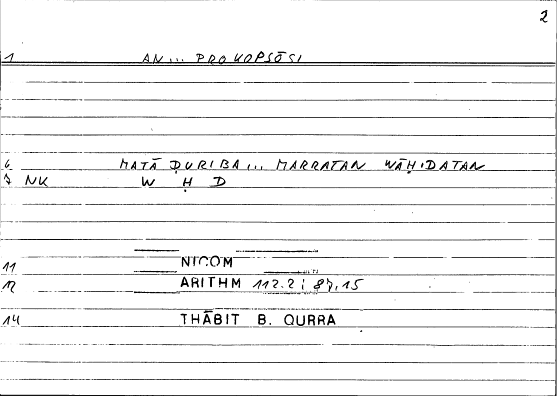 2
1 AN... PROKOPSŌSI
6 MATĀ ḌURIBA... MARRATAN WĀḤIDATAN
7 NK W Ḥ D
11 NICOM
12 ARITHM 112.2; 87,15
14 THĀBIT B. QURRA